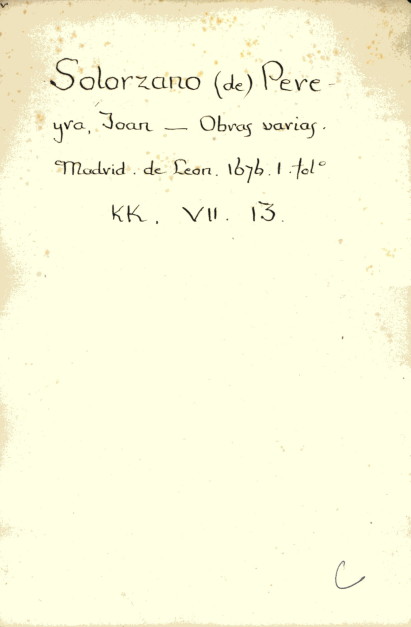 Solorzano (de) Pere-
yra, Joan — Obras varias.
Madrid. de Leon. 1676. 1. fol°
KK. VII. 13.
C